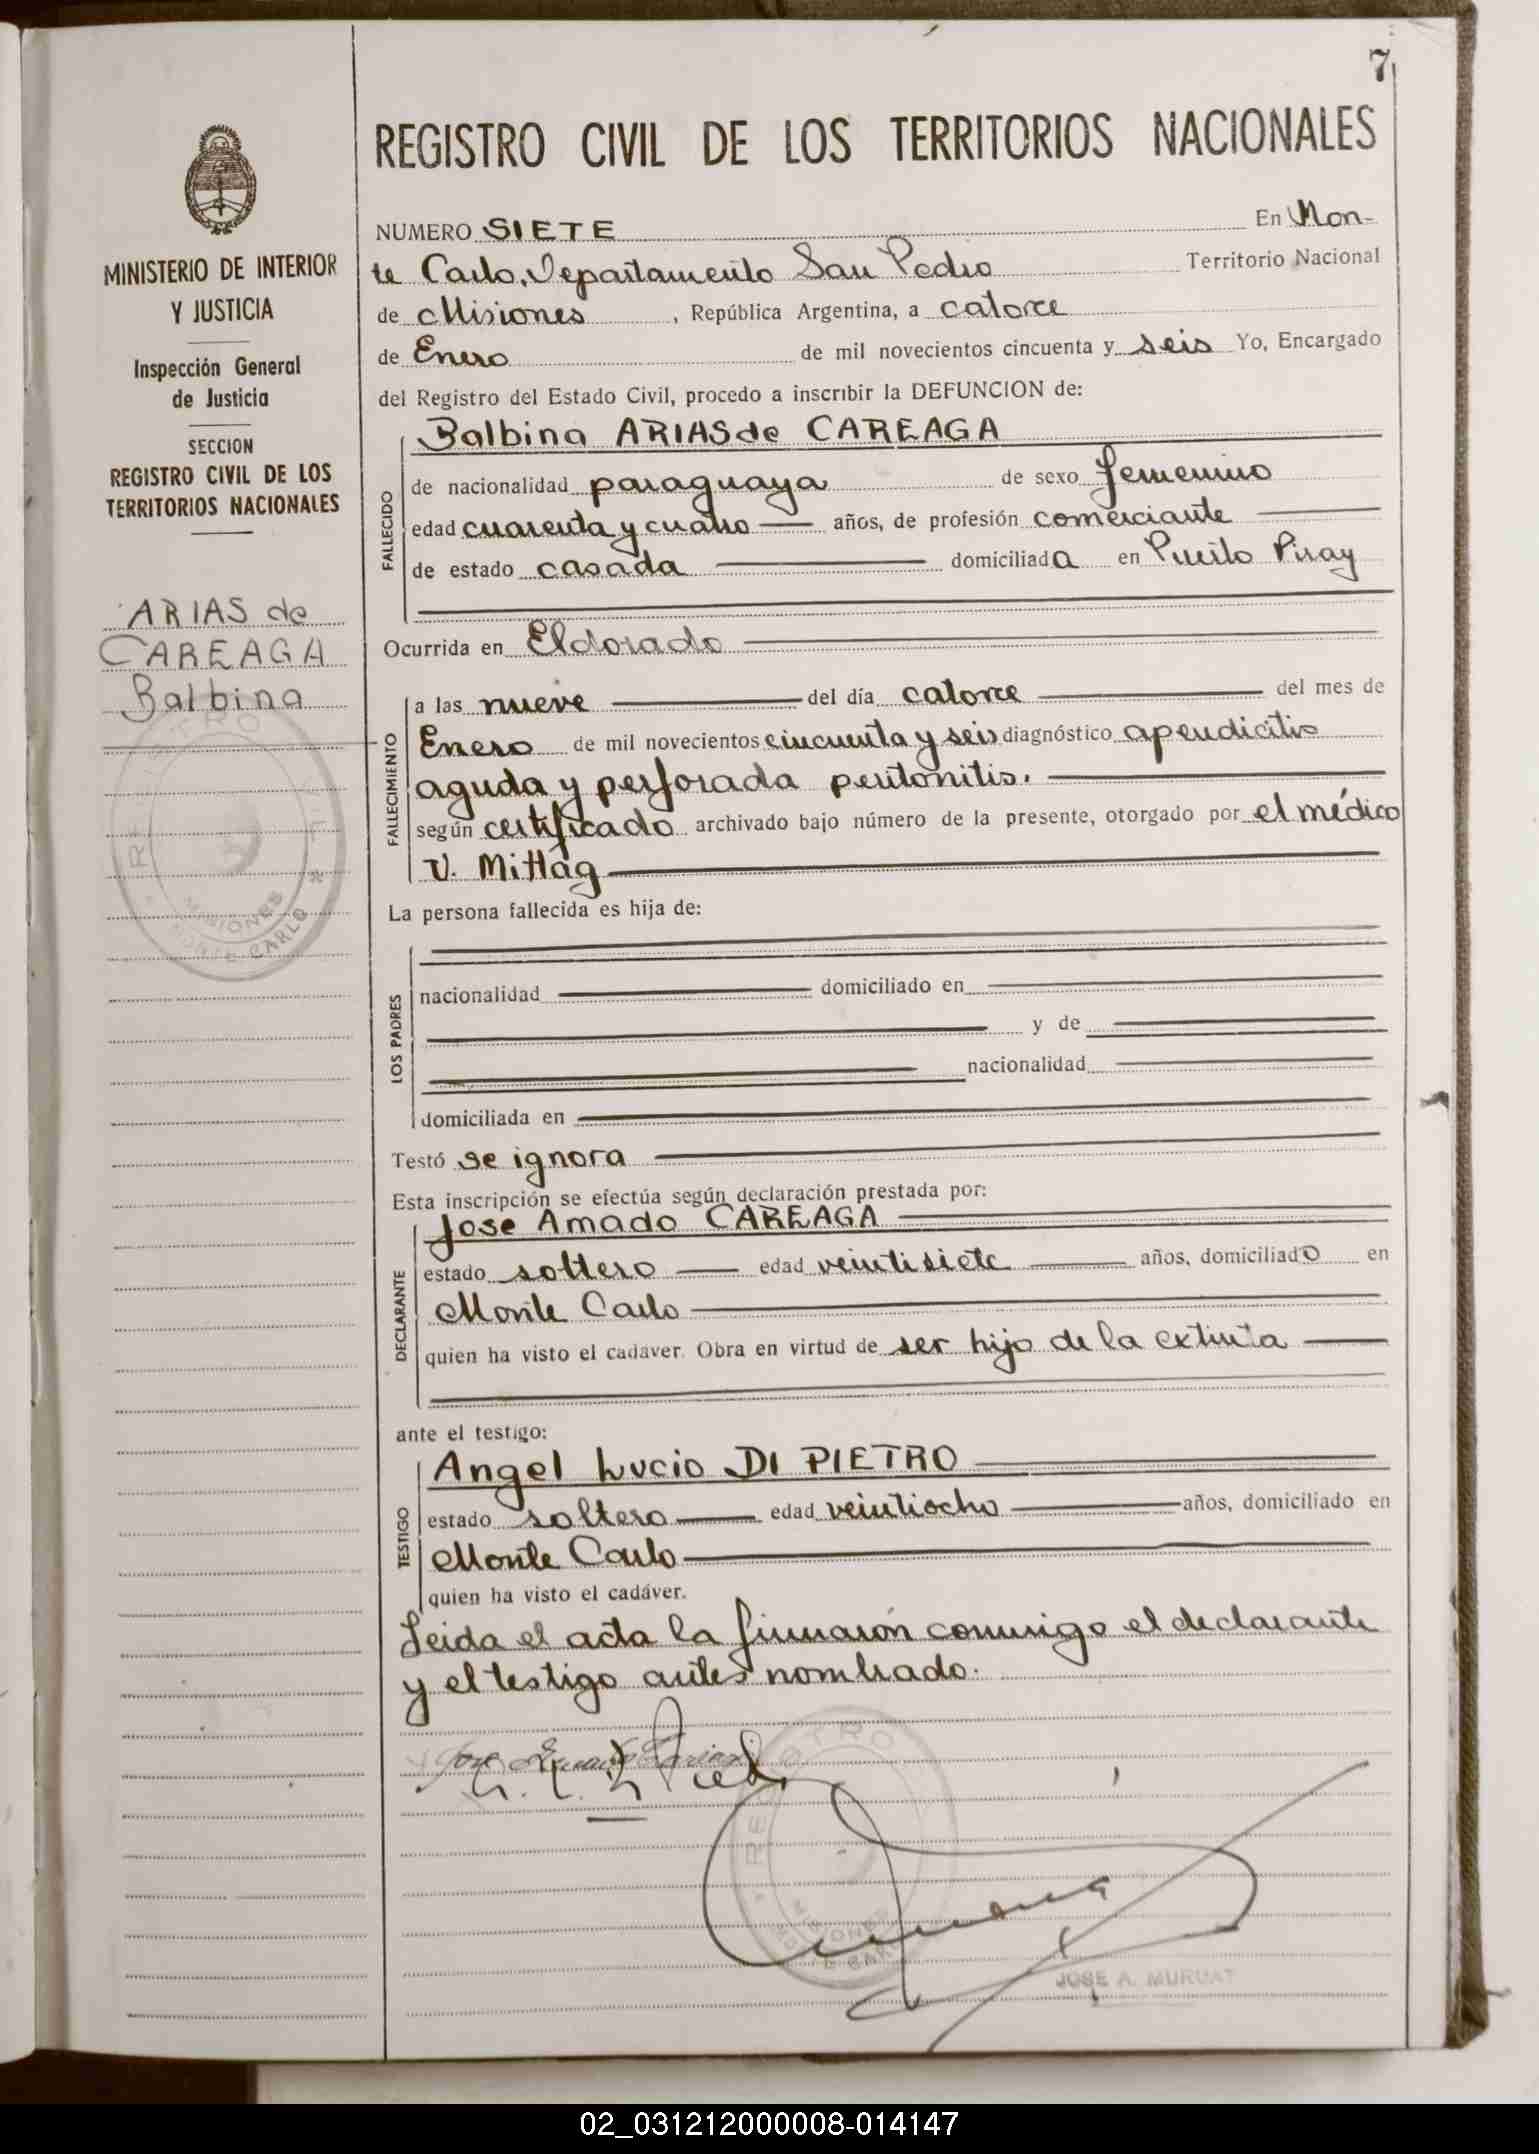 7
REGISTRO CIVIL DE LOS TERRITORIOS NACIONALES
MINISTERIO DE INTERIOR
Y JUSTICIA
Inspección General
de Justicia
SECCION
REGISTRO CIVIL DE LOS
TERRITORIOS NACIONALES
ARIAS de
CAREAGA
Balbina
NUMERO SIETE En Mon-
te Carlo, Departamento San Pedro Territorio Nacional
de Misiones, República Argentina, a catorce
de Enero de mil novecientos cincuenta y seis Yo, Encargado
del Registro del Estado Civil, procedo a inscribir la DEFUNCION de:
FALLECIDO
Balbina ARIAS de CAREAGA
de nacionalidad paraguaya de sexo femenino
edad cuarenta y cuatro años, de profesión comerciante
de estado casada domiciliada en Puerto Piray
Ocurrida en Eldorado
FALLECIMIENTO
a las nueve del día catorce del mes de
Enero de mil novecientos cincuenta y seis diagnóstico apendicitis
aguda y perforada peritonitis.
según certificado archivado bajo número de la presente, otorgado por el médico
V. Mittag
La persona fallecida es hija de:
LOS PADRES
nacionalidad domiciliado en
y de
nacionalidad
domiciliada en
Testó se ignora
Esta inscripción se efectúa según declaración prestada por:
DECLARANTE
Jose Amado CAREAGA
estado soltero edad veintisiete años, domiciliado en
Monte Carlo
quien ha visto el cadáver. Obra en virtud de ser hijo de la extinta
ante el testigo:
TESTIGO
Angel Lucio DI PIETRO
estado soltero edad veintiocho años, domiciliado en
Monte Carlo
quien ha visto el cadáver.
Leida el acta la firmaron conmigo el declarante
y el testigo antes nombrado.
REGISTRO
MISIONES
MONTE CARLO
JOSE A.
02_031212000008-014147